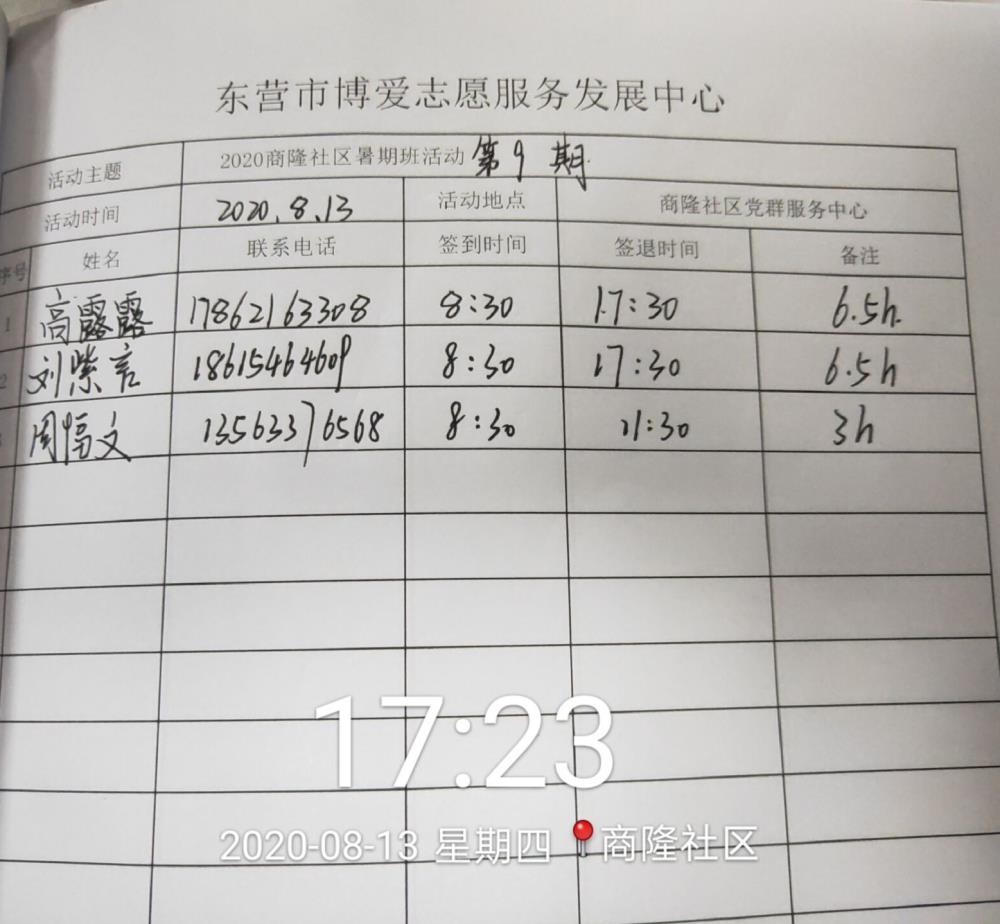 东营市博爱志愿服务发展中心
活动主题 2020商隆社区暑期班活动 第9期
活动时间 2020.8.13 活动地点 商隆社区党群服务中心
序号 姓名 联系电话 签到时间 签退时间 备注
1 高露露 17862163308 8:30 17:30 6.5h
2 刘紫言 18615464609 8:30 17:30 6.5h
周 文 13563376568 8:30 11:30 3h
17:23
2020-08-13 星期四 商隆社区